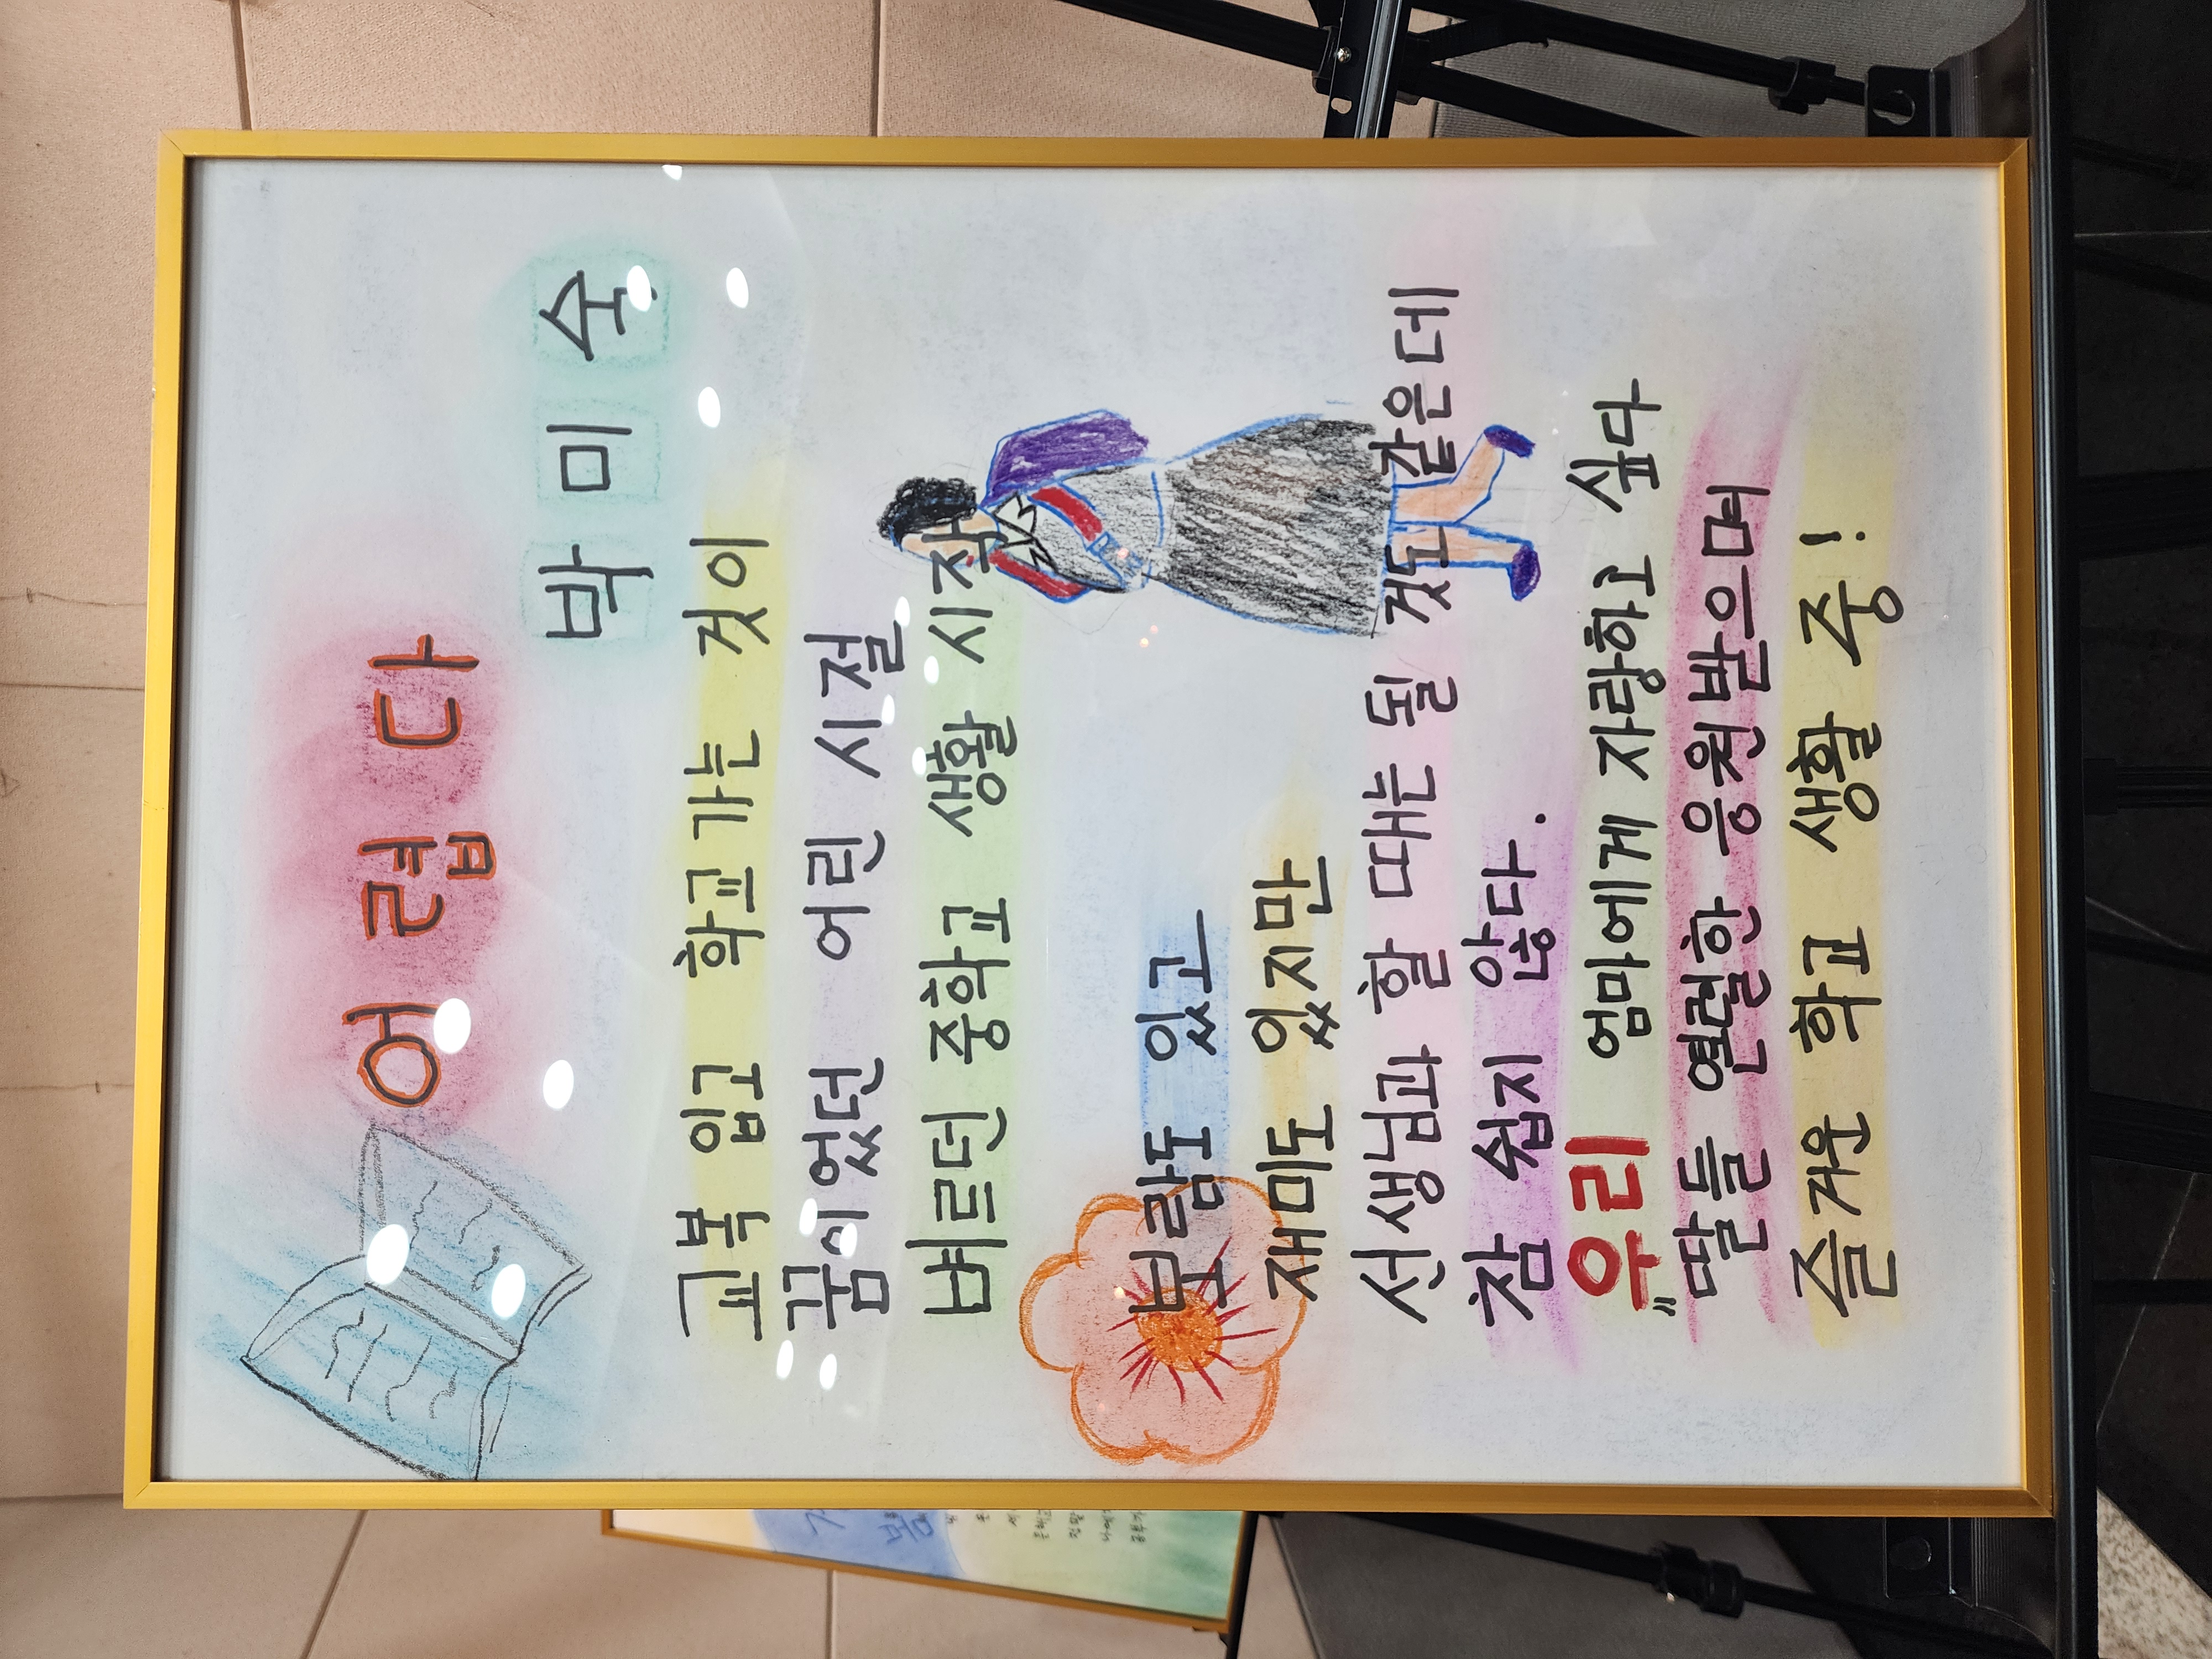 어렵다
박미숙
교복 입고 학교가는 것이
꿈이었던 어린 시절
벼르던 중학교 생활 시작
보람도 있고
재미도 있지만
선생님과 할 때는 될 것도 같은데
참 쉽지 않다.
유리 엄마에게 자랑하고 싶다
"딸들 열렬한 응원받으며
즐거운 학교 생활 중!